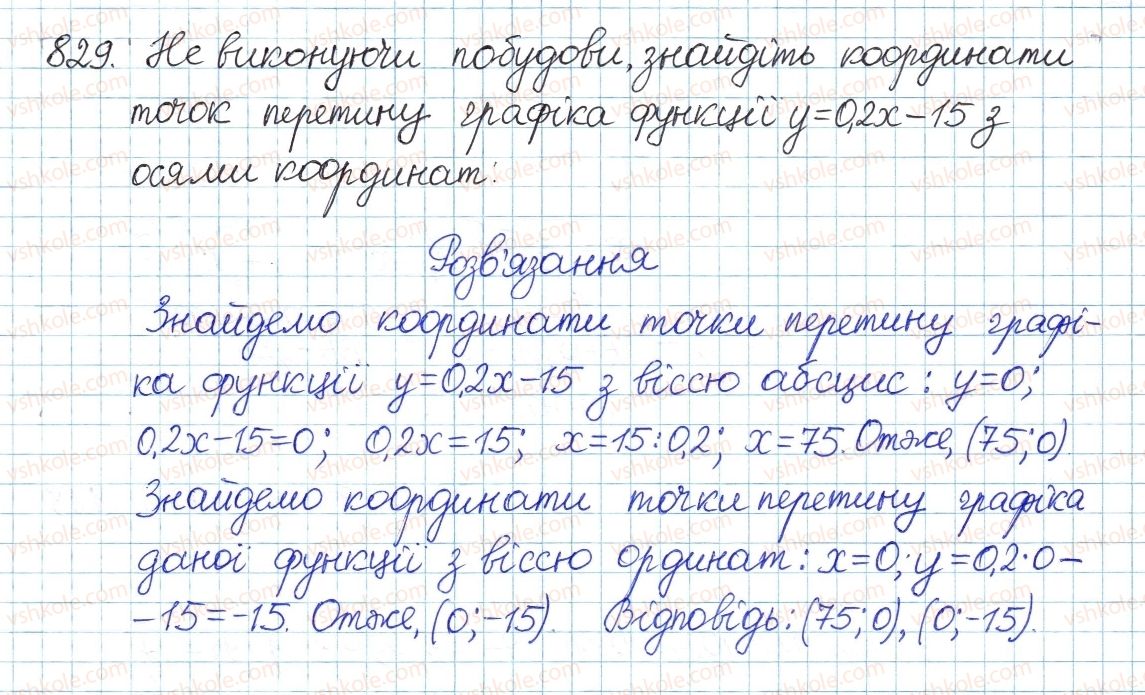 829. Не виконуючи побудови, знайдіть координати
точок перетину графіка функції y=0,2x-15 з
осями координат:
Розв'язання
Знайдемо координати точки перетину графі-
ка функції y=0,2x-15 з віссю абсцис: y=0;
0,2x-15=0; 0,2x=15; x=15:0,2; x=75. Отже, (75;0)
Знайдемо координати точки перетину графіка
даної функції з віссю ординат: x=0; y=0,2·0-
-15=-15. Отже, (0;-15). Відповідь: (75;0), (0;-15).